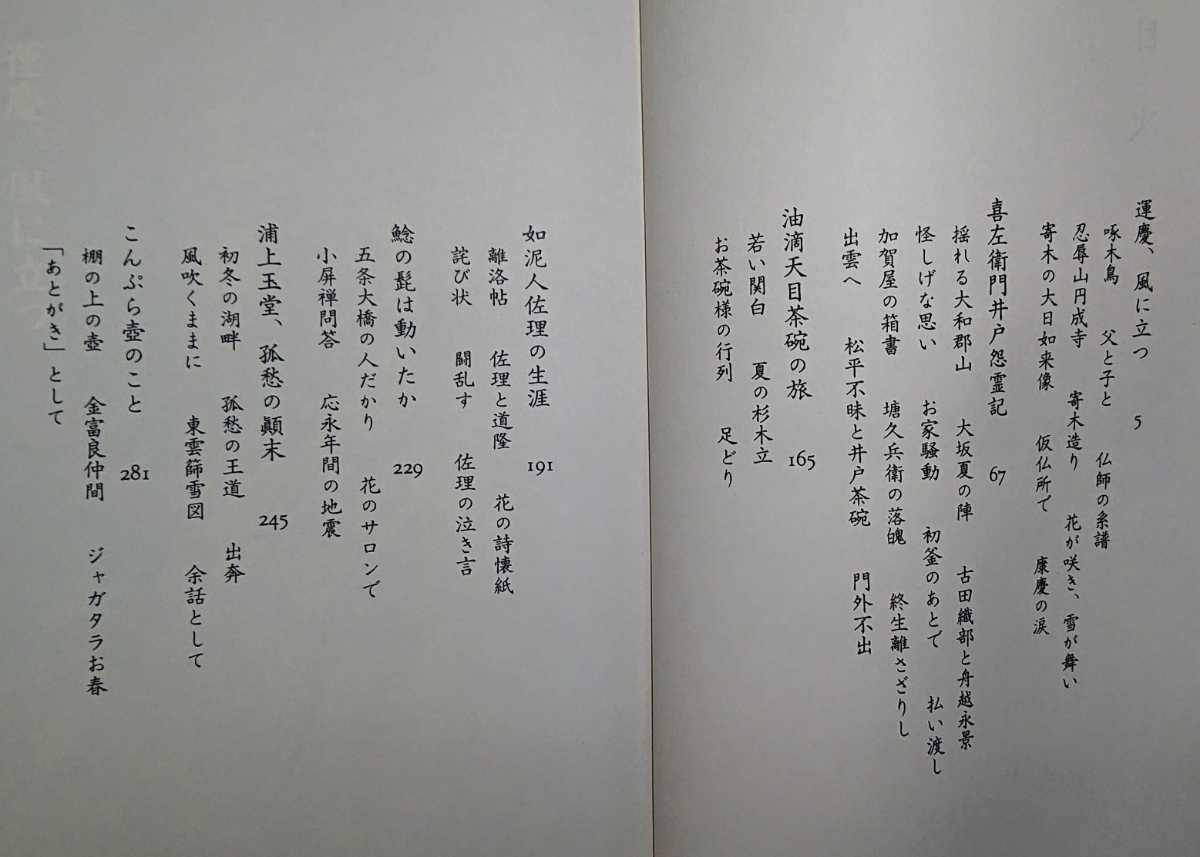 運慶、風に立つ　5
啄木鳥　父と子と　仏師の系譜
忍辱山円成寺　寄木造り　花が咲き、雪が舞い
寄木の大日如来像　仮仏所で　康慶の涙
喜左衛門井戸怨霊記　67
揺れる大和郡山　大坂夏の陣　古田織部と舟越永景
怪しげな思い　お家騒動　初釜のあとで　払い渡し
加賀屋の箱書　塘久兵衛の落魄　終生離さざりし
出雲へ　松平不昧と井戸茶碗　門外不出
油滴天目茶碗の旅　165
若い関白　夏の杉木立
お茶碗様の行列　足どり
如泥人佐理の生涯　191
離洛帖　佐理と道隆　花の詩懐紙
詫び状　闘乱す　佐理の泣き言
鯰の髭は動いたか　229
五条大橋の人だかり　花のサロンで
小屏禅問答　応永年間の地震
浦上玉堂、孤愁の顚末　245
初冬の湖畔　孤愁の王道　出奔
風吹くままに　東雲篩雪図　余話として
こんぷら壺のこと　281
棚の上の壺　金富良仲間　ジャガタラお春
「あとがき」として